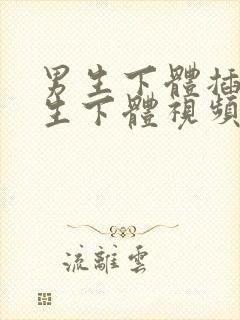 男生下體插
生下體視頻
流離雲